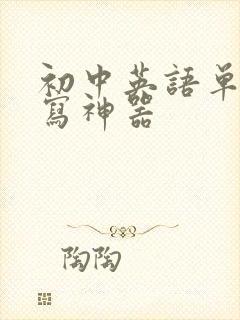 初中英語單
寫神器
陶陶